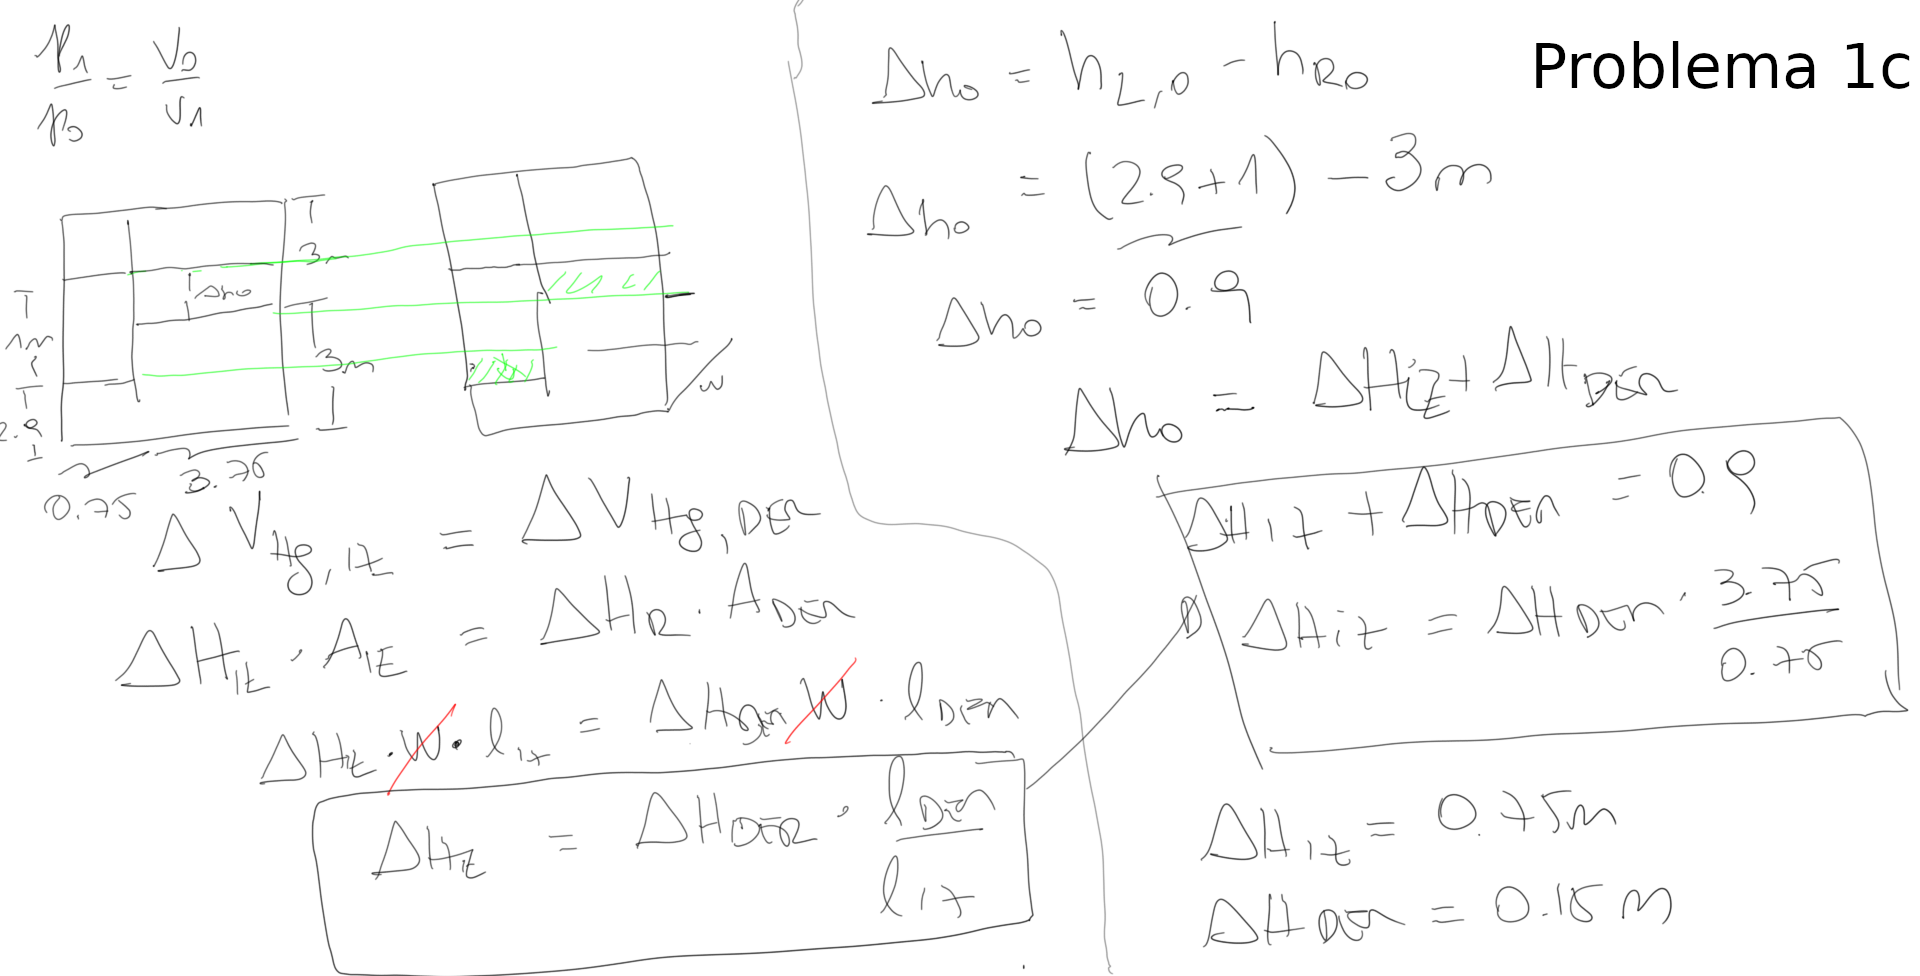 Problema 1c
p1/p0 = V0/V1
3m
Δho
1m
3m
2.9
0.75
3.75
w
ΔV Hg,IZ = ΔV Hg,DER
ΔH IZ · A IZ = ΔH R · A DER
ΔH IZ · W · l IZ = ΔH DER W · l DER
ΔH IZ = ΔH DER · l DER / l IZ
Δho = h L,0 - h R0
Δho = (2.9+1) - 3m
Δho = 0.9
Δho = ΔH IZ + ΔH DER
ΔH IZ + ΔH DER = 0.9
ΔH IZ = ΔH DER · 3.75/0.75
ΔH IZ = 0.75m
ΔH DER = 0.15m